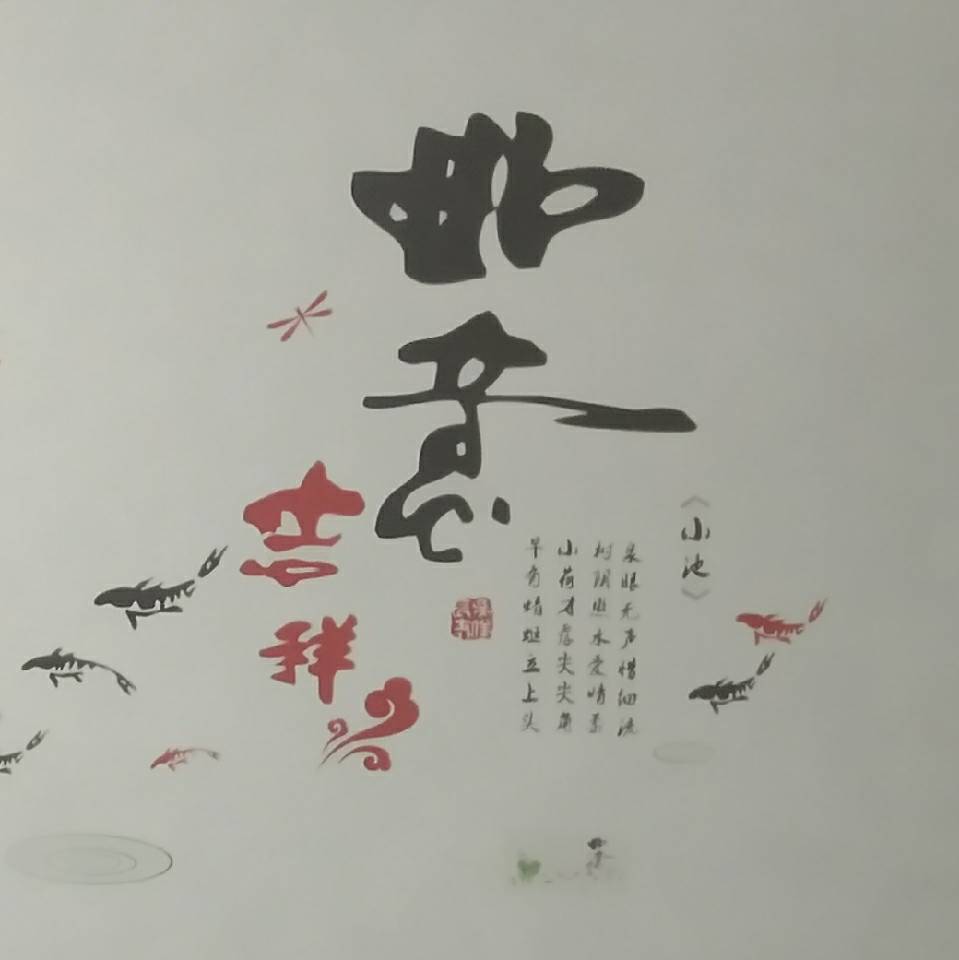 如意
吉祥
《小池》
泉眼无声惜细流
树阴照水爱晴柔
小荷才露尖尖角
早有蜻蜓立上头